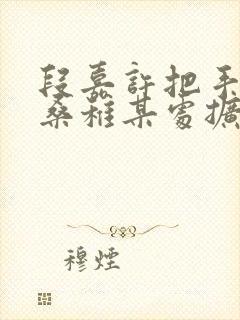 段嘉許把手
桑稚某處擴
穆煙